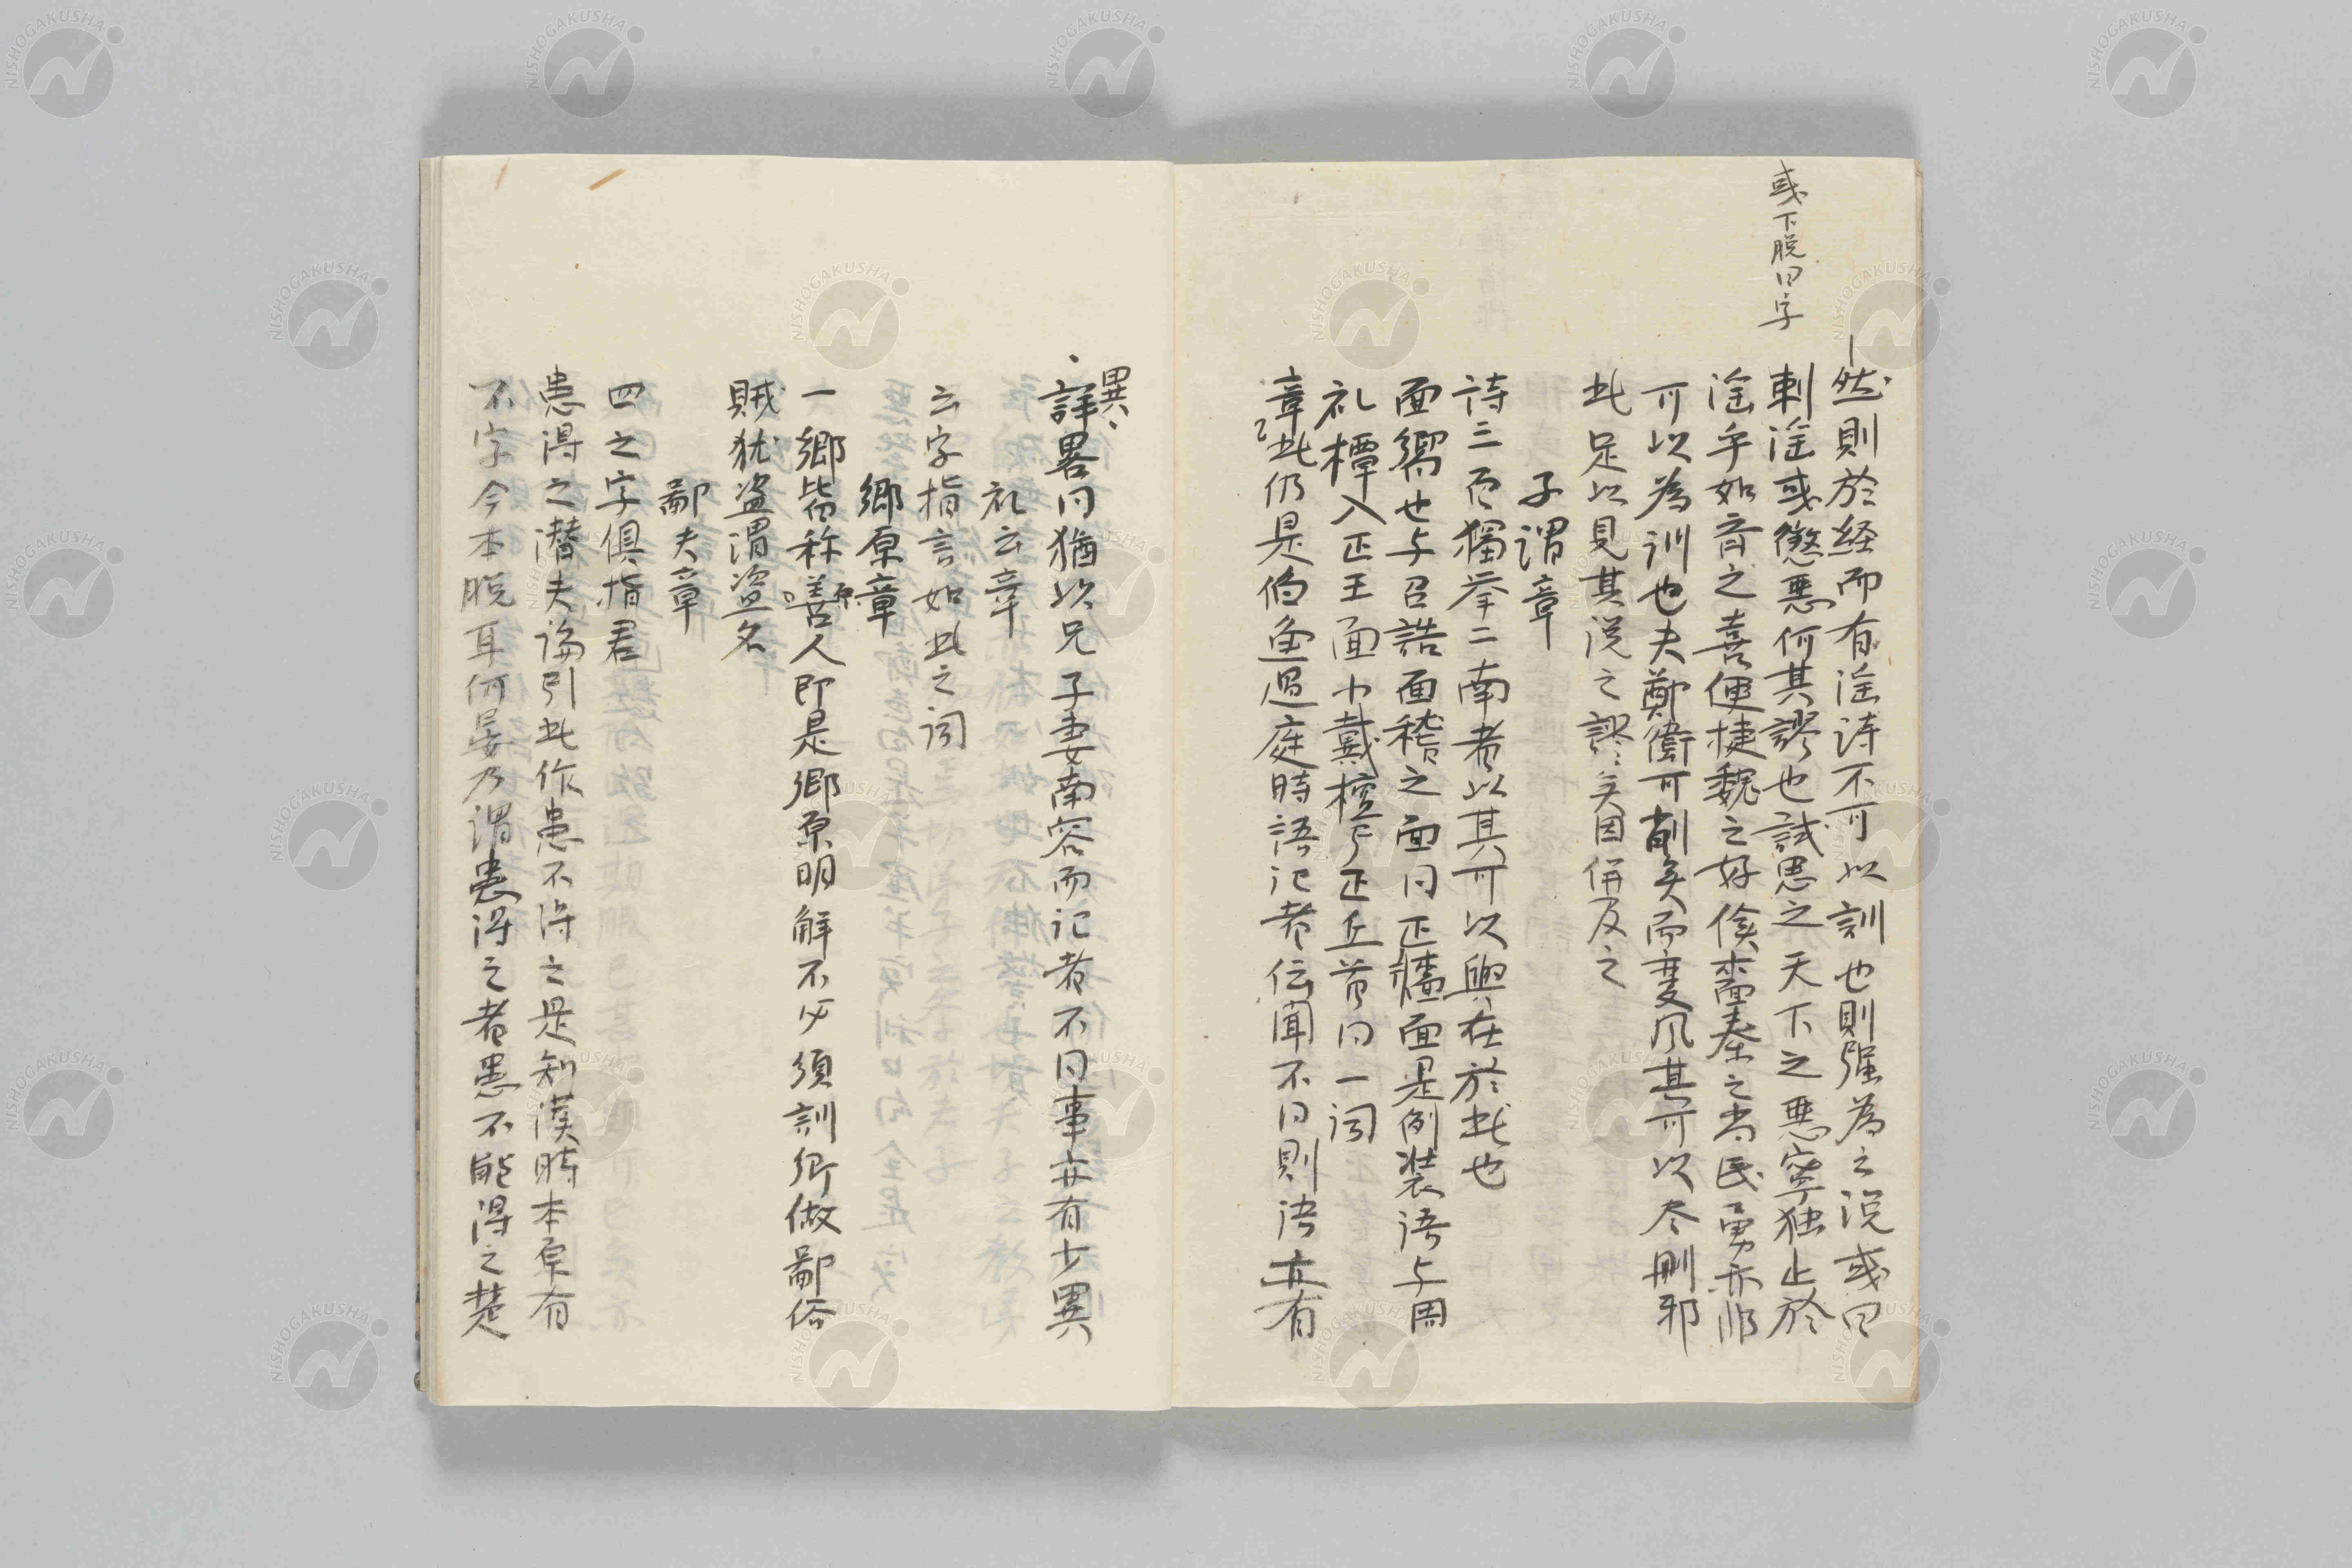 或下脱曰字
然則於経而有淫詩不可以訓也則强為之説或曰
刺淫或懲悪何其謬也試思之天下之悪寧独止於
淫乎如斉之喜便捷魏之好倹嗇秦之尚民勇亦非
可以為訓也夫鄭衛可削矣而変風其可以尽刪邪
此足以見其説之謬矣因併及之
子謂章
詩三百獨挙二南者以其可以興在於此也
面嚮也与召誥面稽之面同正牆面是例装語与周
礼欑入正王面小戴檀弓正丘首同一詞
章此仍是伯魚過庭時語記者伝聞不同則語亦有
異
詳畧同猶以兄子妻南容而記者不同事亦有少異
礼云章
云字指言如此之詞
郷原章
一郷皆称原人即是郷原明解不必須訓郷做鄙俗
賊犹盗謂盗名
鄙夫章
四之字俱指君
患得之潜夫論引此作患不得之是知漢時本原有
不字今本脱耳何晏乃謂患得之者患不能得之楚